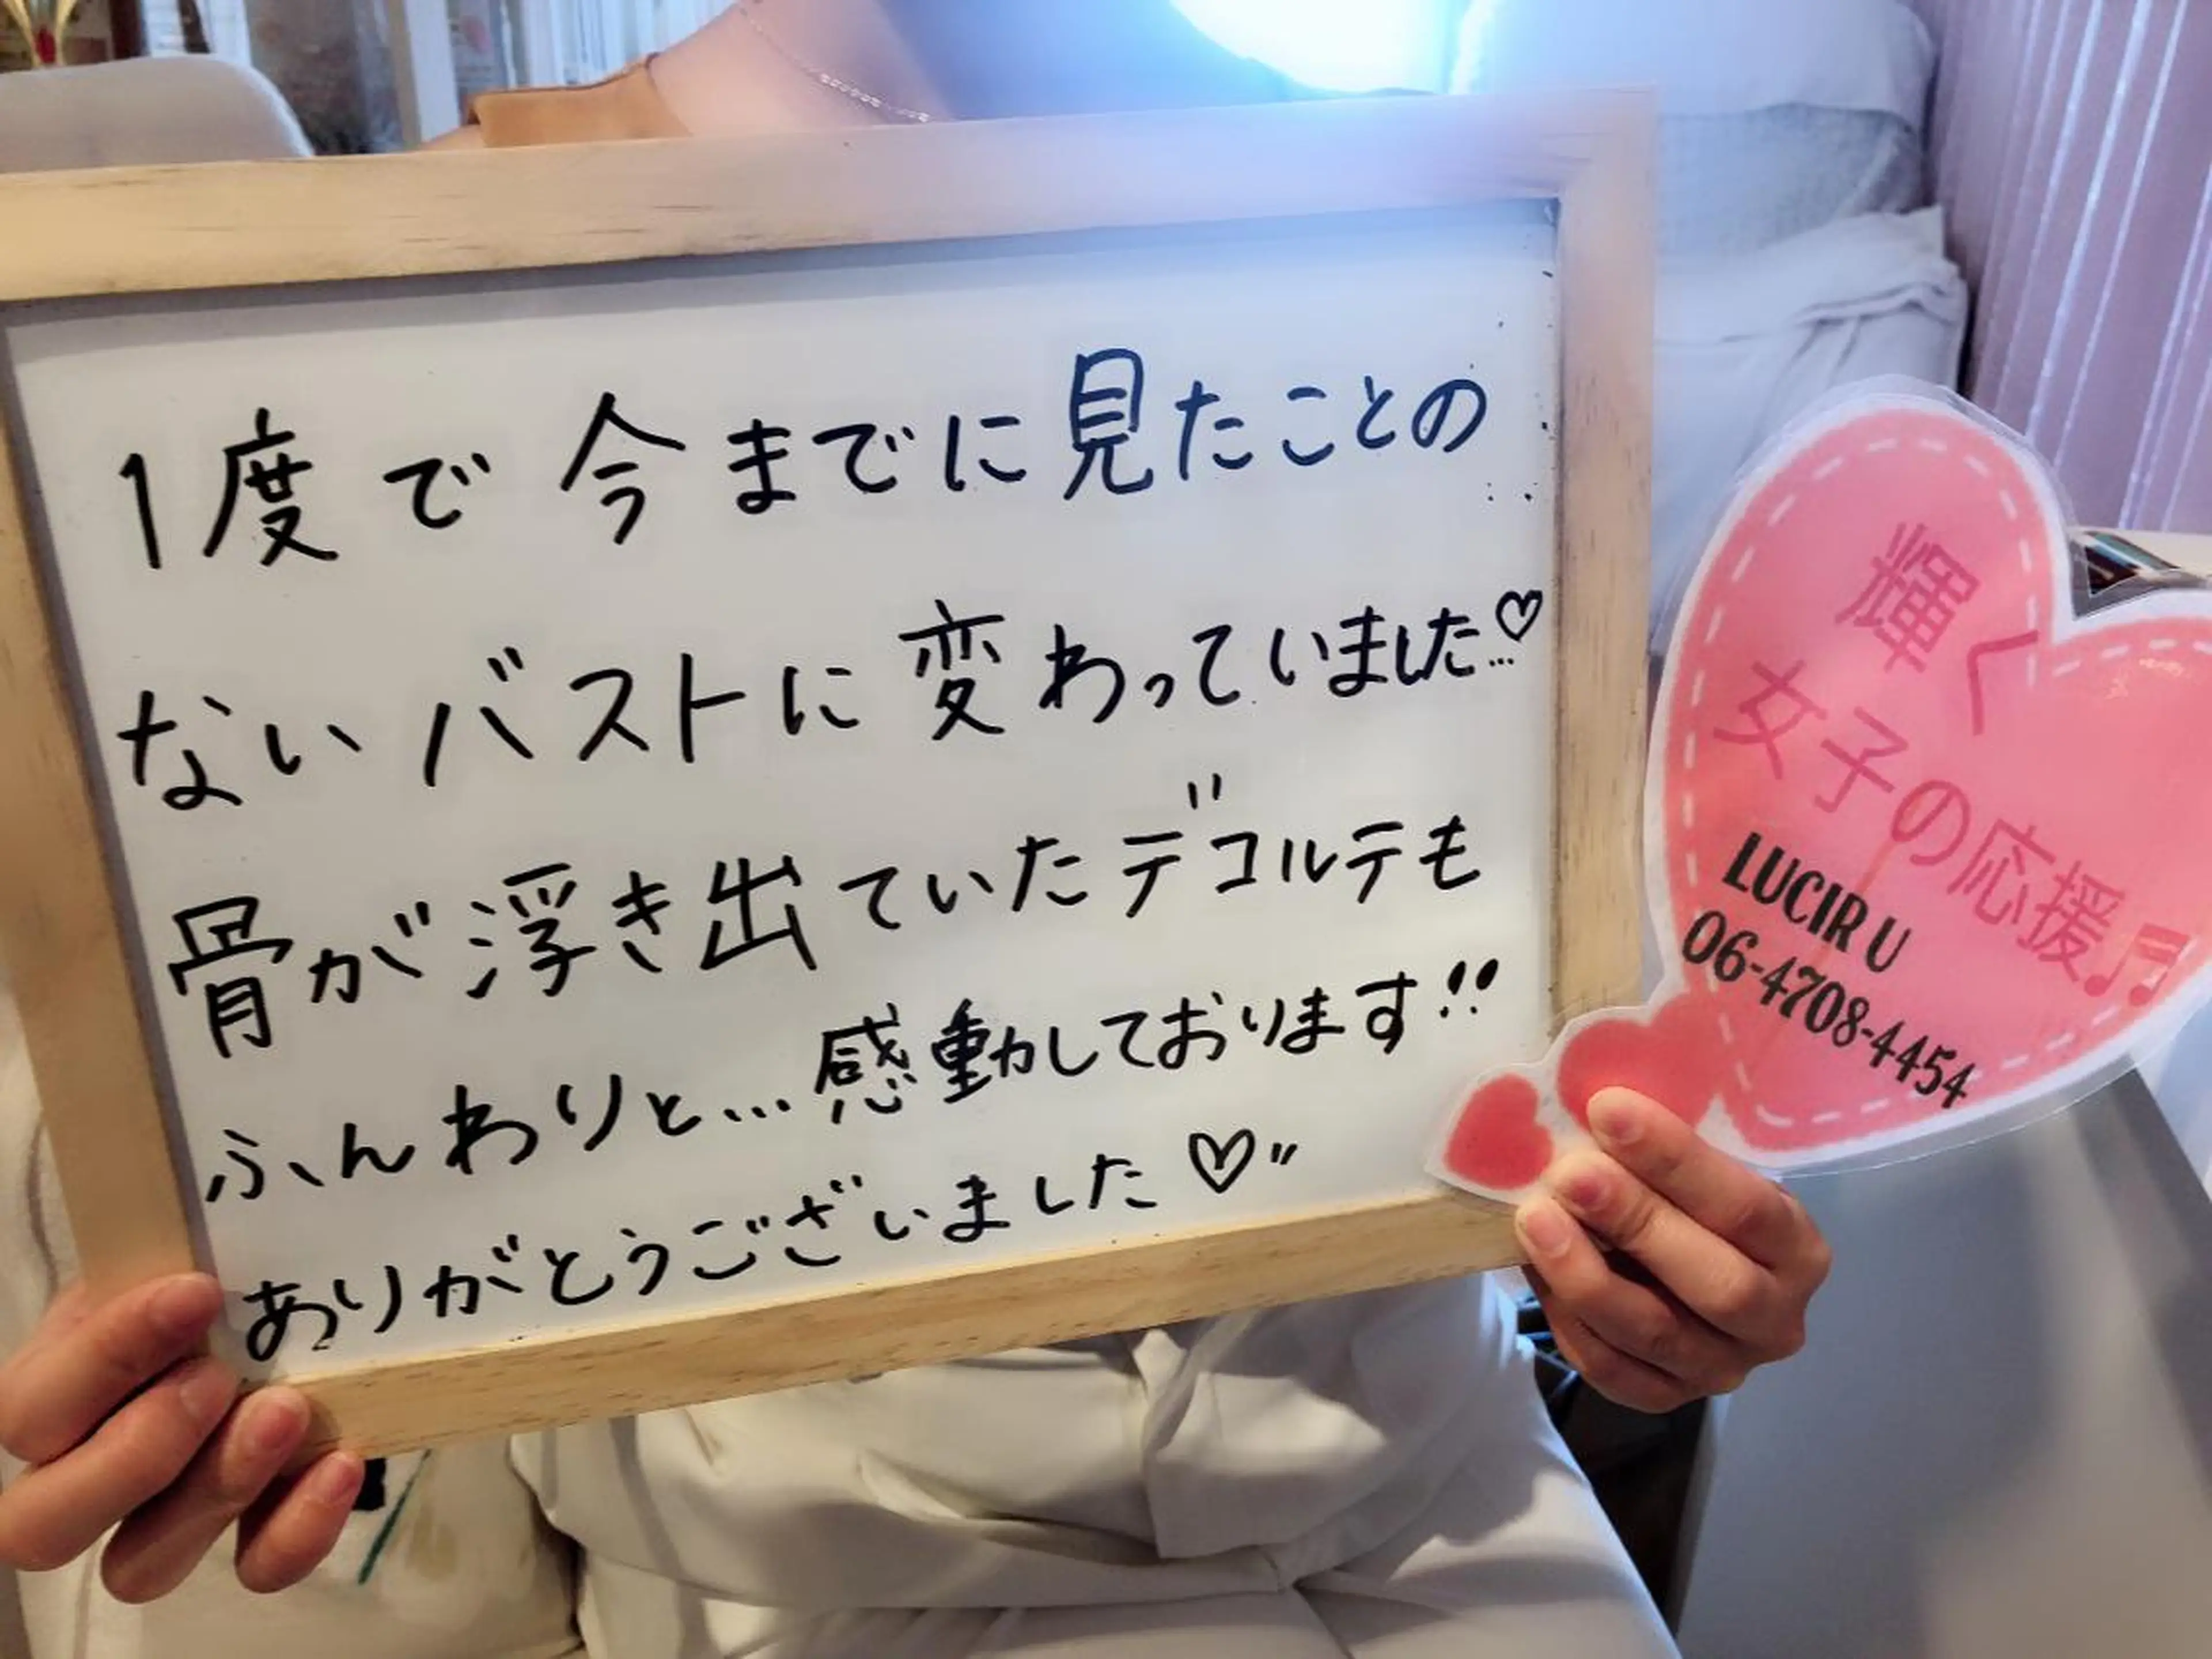 1度で今までに見たことの
ないバストに変わっていました…♡
骨が浮き出ていたデコルテも
ふんわりと…感動しております!!
ありがとうございました♡〃
輝く
女子の応援♬
LUCIR U
06-4708-4454